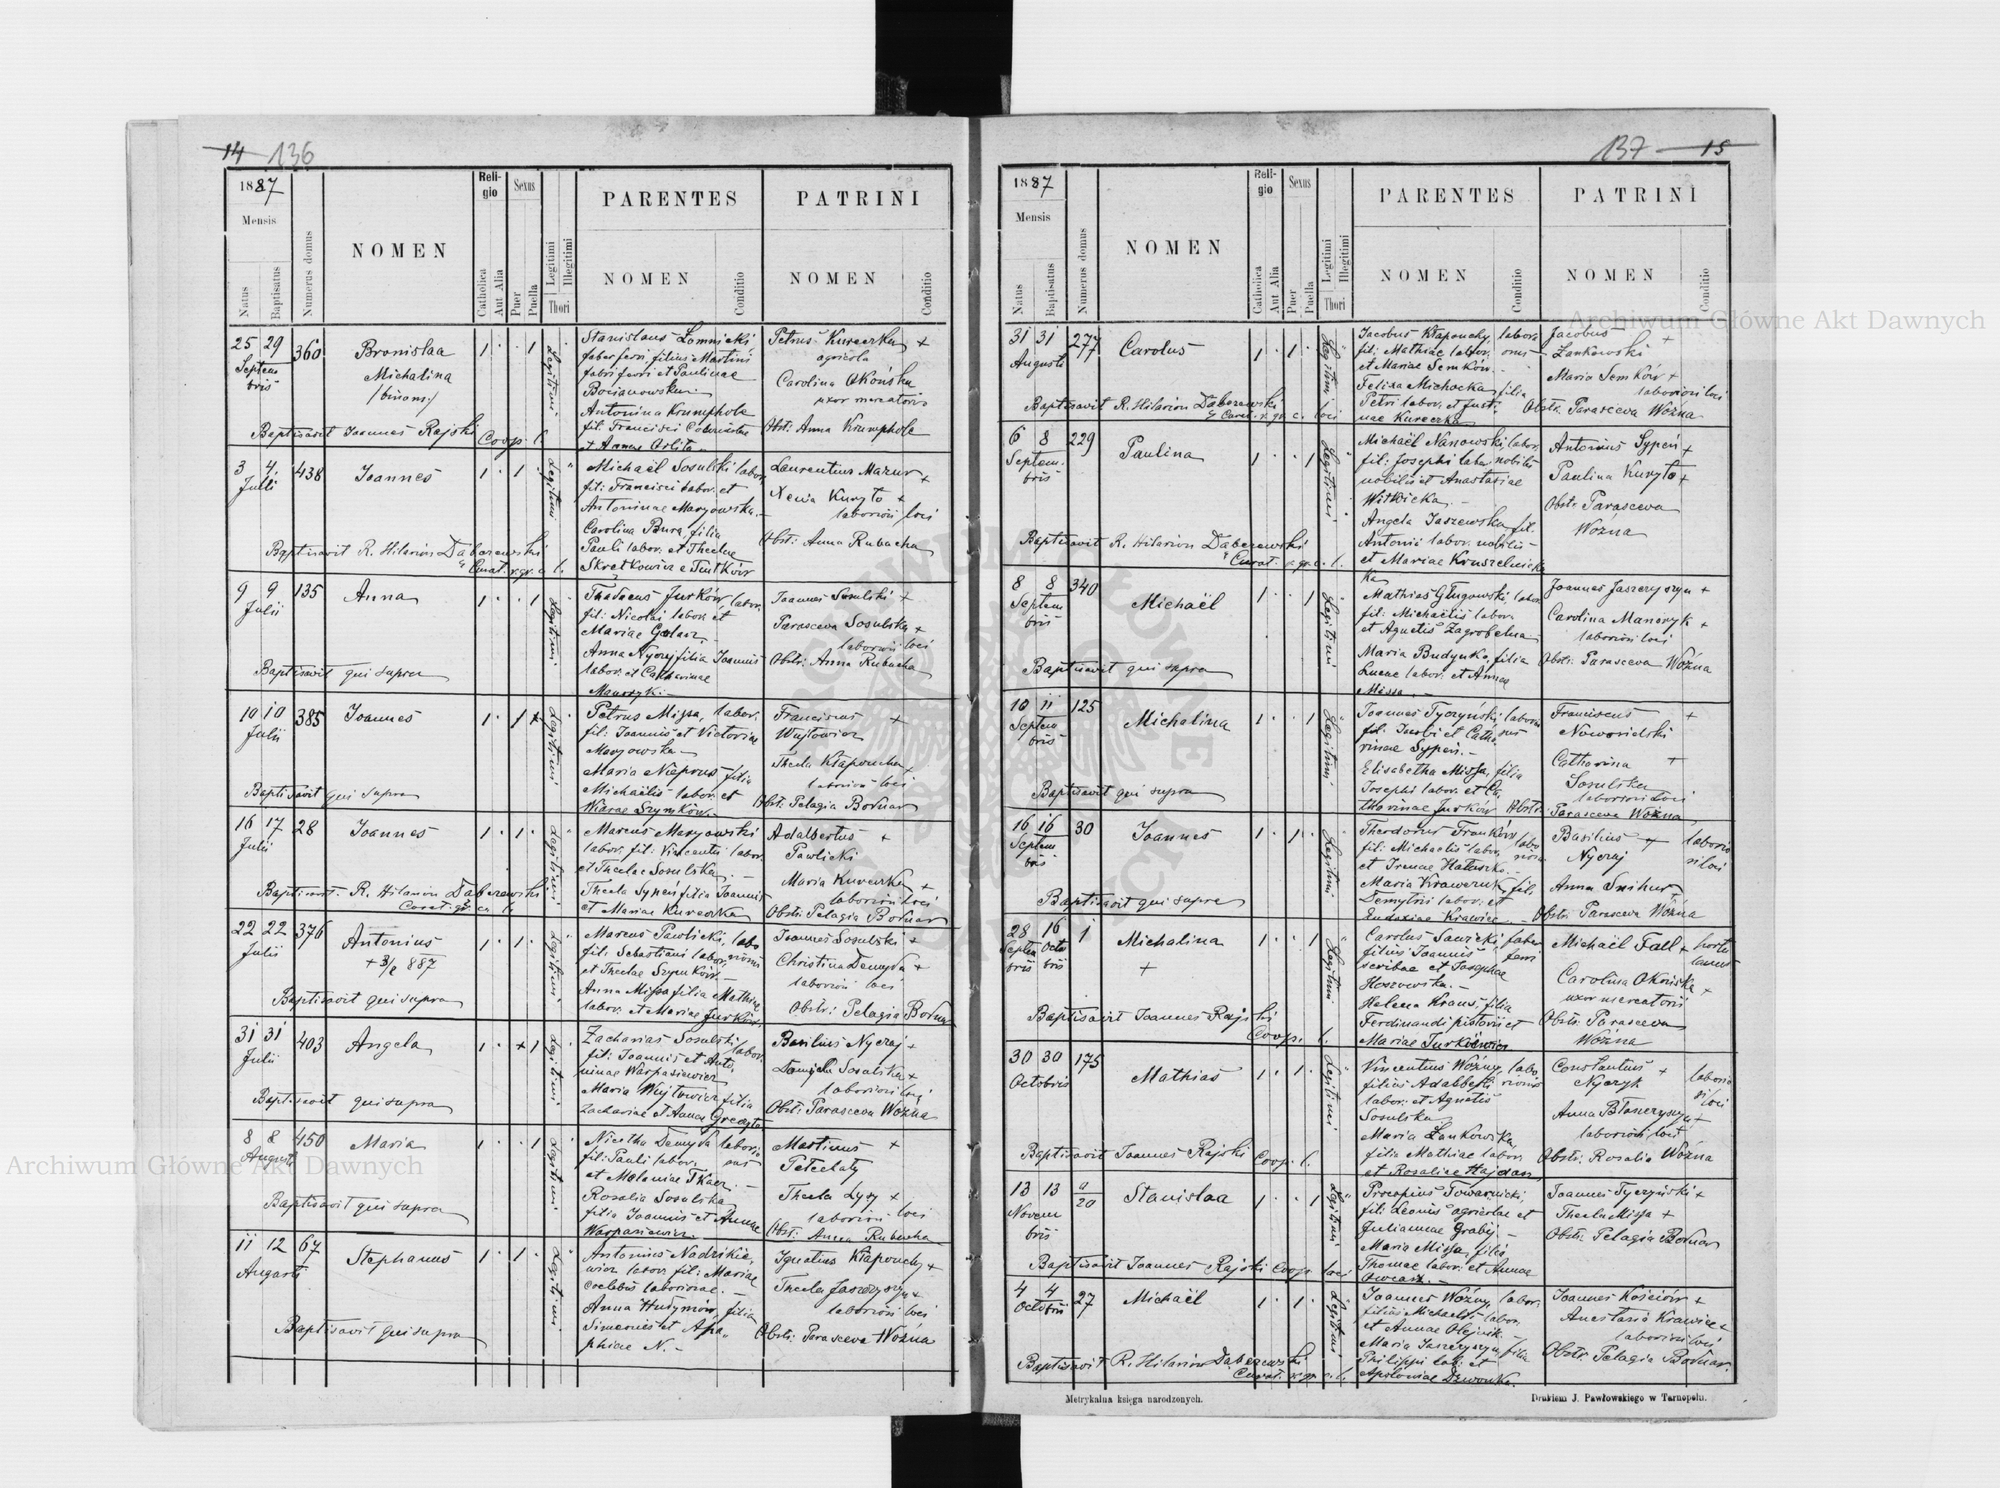 14 136
1887
Mensis
Natus
Baptisatus
Numerus domus
NOMEN
Reli-
gio
Catholica
Aut Alia
Sexus
Puer
Puella
Legitimi
Illegitimi
Thori
PARENTES
NOMEN
Conditio
PATRINI
NOMEN
Conditio
25 29 360
Septem
bris
Bronislaa
Michalina
/binom./
Legitimi
Stanislaus Łomnicki
faber ferri, filius Martini
fabri ferri et Paulinae
Bocianowska
Antonina Krumphole
fil. Francisci
et Annae Orlita
Petrus Kureczka +
agricola
Carolina Okońska
uxor mercatoris
Obst: Anna Krumphole
Baptisavit Joannes Rajski Coop. l.
3 4 438
Julii
Joannes
Legitimi
Michaël Sosulski labor.
fil: Francisci labor. et
Antoninae Maryowska.
Carolina Bura, filia
Pauli labor. et Theclae
Skretkowicz
Laurentius Mazur +
Xenia Kuryło +
laboriosi loci
Obst: Anna Rubacha
Baptisavit R. Hilarion Dąbczewski
Curat. r. gr. c. l.
9 9 135
Julii
Anna
Legitimi
Thadaeus Jurków, labor.
fil: Nicolai labor. et
Mariae Golasz
Anna Nyczaj filia Joannis
labor. et Catharinae
Manczyk.
Joannes Sosulski +
Parasceva Sosulska +
laboriosi loci
Obst: Anna Rubacha
Baptisavit qui supra
10 10 385
Julii
Joannes
Legitimi
Petrus Missa, labor.
fil: Joannis et Victoriae
Maryowska
Maria Nieprus filia
Michaëlis labor. et
Szymków.
Franciscus +
Wujtowicz
Thecla Kłapoucha +
laboriosi loci
Obst: Pelagia Bodnar
Baptisavit qui supra
16 17 28
Julii
Joannes
Legitimi
Marcus Maryowski
labor. fil: Vincentii labor.
et Theclae Sosulska.
Thecla Sypeń filia Joannis
et Mariae Kureczka
Adalbertus +
Pawlicki
Maria Kureczka +
laboriosi loci
Obst: Pelagia Bodnar
Baptisavit R. Hilarion Dąbczewski
Curat. gr. ca. l.
22 22 376
Julii
Antonius
+ 3/8 887
Legitimi
Marcus Pawlicki, labo
fil: Sebastiani labor. riosus
et Theclae Szymków.
Anna Missa filia Mathiae
labor. et Mariae Jurków.
Joannes Sosulski +
Christina Demyda +
laboriosi loci
Obst: Pelagia Bodnar
Baptisavit qui supra
31 31 403
Julii
Angela
Legitimi
Zacharias Sosulski labor.
fil: Joannis et Anto,
ninae Warpasiewicz
Maria Wujtowicz filia
Zachariae et Annae
Basilius Nyczaj +
Sosulska +
laboriosi loci
Obst: Parasceva Woźna
Baptisavit qui supra
8 8 450
Augusti
Maria
Legitimi
Nicetha Demyda laborio
fil: Pauli labor. sus
et Melaniae Tkacz.
Rosalia Sosulska
filia Joannis et Annae
Warpasiewicz.
Martinus +
Petechaty
Thecla Lysy +
laboriosi loci
Obst: Anna Rubacha
Baptisavit qui supra
11 12 67
Augusti
Stephanus
Legitimi
Antonius Nadzikie,
wicz labor. fil: Mariae
coelebis laboriosae.
Anna Hudymów, filia
Simeonis et Aga,,
phiae N.
Ignatius Kłapouchy +
Thecla Jaszczyszyn +
laboriosi loci
Obst: Parasceva Woźna
Baptisavit qui supra
137 15
1887
Mensis
Natus
Baptisatus
Numerus domus
NOMEN
Reli-
gio
Catholica
Aut Alia
Sexus
Puer
Puella
Legitimi
Illegitimi
Thori
PARENTES
NOMEN
Conditio
PATRINI
NOMEN
Conditio
31 31 277
Augusti
Carolus
Legitimi
Jacobus Kłapouchy, labori
fil: Mathiae labor. osus
et Mariae Semków.
Felixa Michocka, filia
Petri labor. et Justi,
nae Kureczka
Jacobus +
Łankowski
Maria Semków +
laboriosi loci
Obst: Parasceva Woźna
Baptisavit R. Hilarion Dąbczewski
Curat. r. gr. c. loci
6 8 229
Septem.
bris
Paulina
Legitimi
Michaël Nanowski, labor.
fil: Josephi labor. nobilis
nobilis et Anastasiae
Witkicka.
Angela Jaszewska, fil.
Antonii labor. nobilis
et Mariae Kruszelnicka
Antonius Sypeń +
Paulina Kuryło +
Obst: Parasceva
Woźna
Baptisavit R. Hilarion Dąbczewski
Curat. r. gr. c. l.
8 8 340
Septem
bris
Michaël
Legitimi
Mathias Gługowski, labor.
fil: Michaëlis labor.
et Agnetis Zagrobelna
Maria Budynka, filia
Lucae labor. et Annae
Missa.
Joannes Jaszczyszyn +
Carolina Manczyk +
laboriosi loci
Obst: Parasceva Woźna
Baptisavit qui supra
10 11 125
Septem
bris
Michalina
Legitimi
Joannes Tyczyński, laborio
fil: Jacobi et Catha, sus
rinae Sypeń.
Elisabetha Missa, filia
Josephi labor. et Ca
tharinae Jurków
Franciscus +
Nowosielski
Catharina +
Sosulska
laboriosi loci
Obst: Parasceva Woźna
Baptisavit qui supra
16 16 30
Septem
bris
Joannes
Legitimi
Theodorus Franków, labo
fil: Michaelis labor. riosus
et Irenae
Maria Krawczuk, fil.
Demytrii labor. et
Eudoxiae Krawiec.
Basilius +
Nyczaj
Anna Snihur
laborio
si loci
Obst: Parasceva Woźna
Baptisavit qui supra
28 16 1
Septem Octo
bris bris
Michalina
+
Legitimi
Carolus Sawicki, faber
filius Joannis ferri
scribae et Josephae
Hoszowska.
Helena Kraus, filia
Ferdinandi pistoris et
Mariae Jurkiewicz
Michaël Fall + hortu
lanus
Carolina Okońska +
uxor mercatoris
Obst: Parasceva
Woźna
Baptisavit Joannes Rajski
Coop. l.
30 30 175
Octobris
Mathias
Legitimi
Vincentius Woźny, labo,
filius Adalberti riosus
labor. et Agnetis
Sosulska
Maria Łankowska,
filia Mathiae labor.
et Rosaliae Hajdan
Constantinus +
Nyczyk
Anna Błaszczyszyn +
laboriosi loci
laborio
si loci
Obst: Rosalia Woźna
Baptisavit Joannes Rajski Coop. l.
13 13 a/20
Novem
bris
Stanislaa
Legitimi
Procopius Towarnicki,
fil: Leonis agricolae et
Juliannae Grabij.
Maria Missa, filia
Thomae labor. et Annae
Owcasz.
Joannes Tyczyński +
Thecla Missa +
Obst: Pelagia Bodnar
Baptisavit Joannes Rajski Coop. loci
4 4 27
Octobris
Michaël
Legitimi
Joannes Woźny, labor.
filius Michaelis labor.
et Annae Olejnik.
Maria Jaszczyszyn, filia
Philippi lab: et
Apoloniae Dzwonka.
Joannes Kościów +
Anastasia Krawiec +
laboriosi loci
Obst: Pelagia Bodnar
Baptisavit R. Hilarion Dąbczewski
Curat. r. gr. c. l.
Metrykalna księga narodzonych.
Drukiem J. Pawłowskiego w Tarnopolu.
Archiwum Główne Akt Dawnych
Archiwum Główne Akt Dawnych